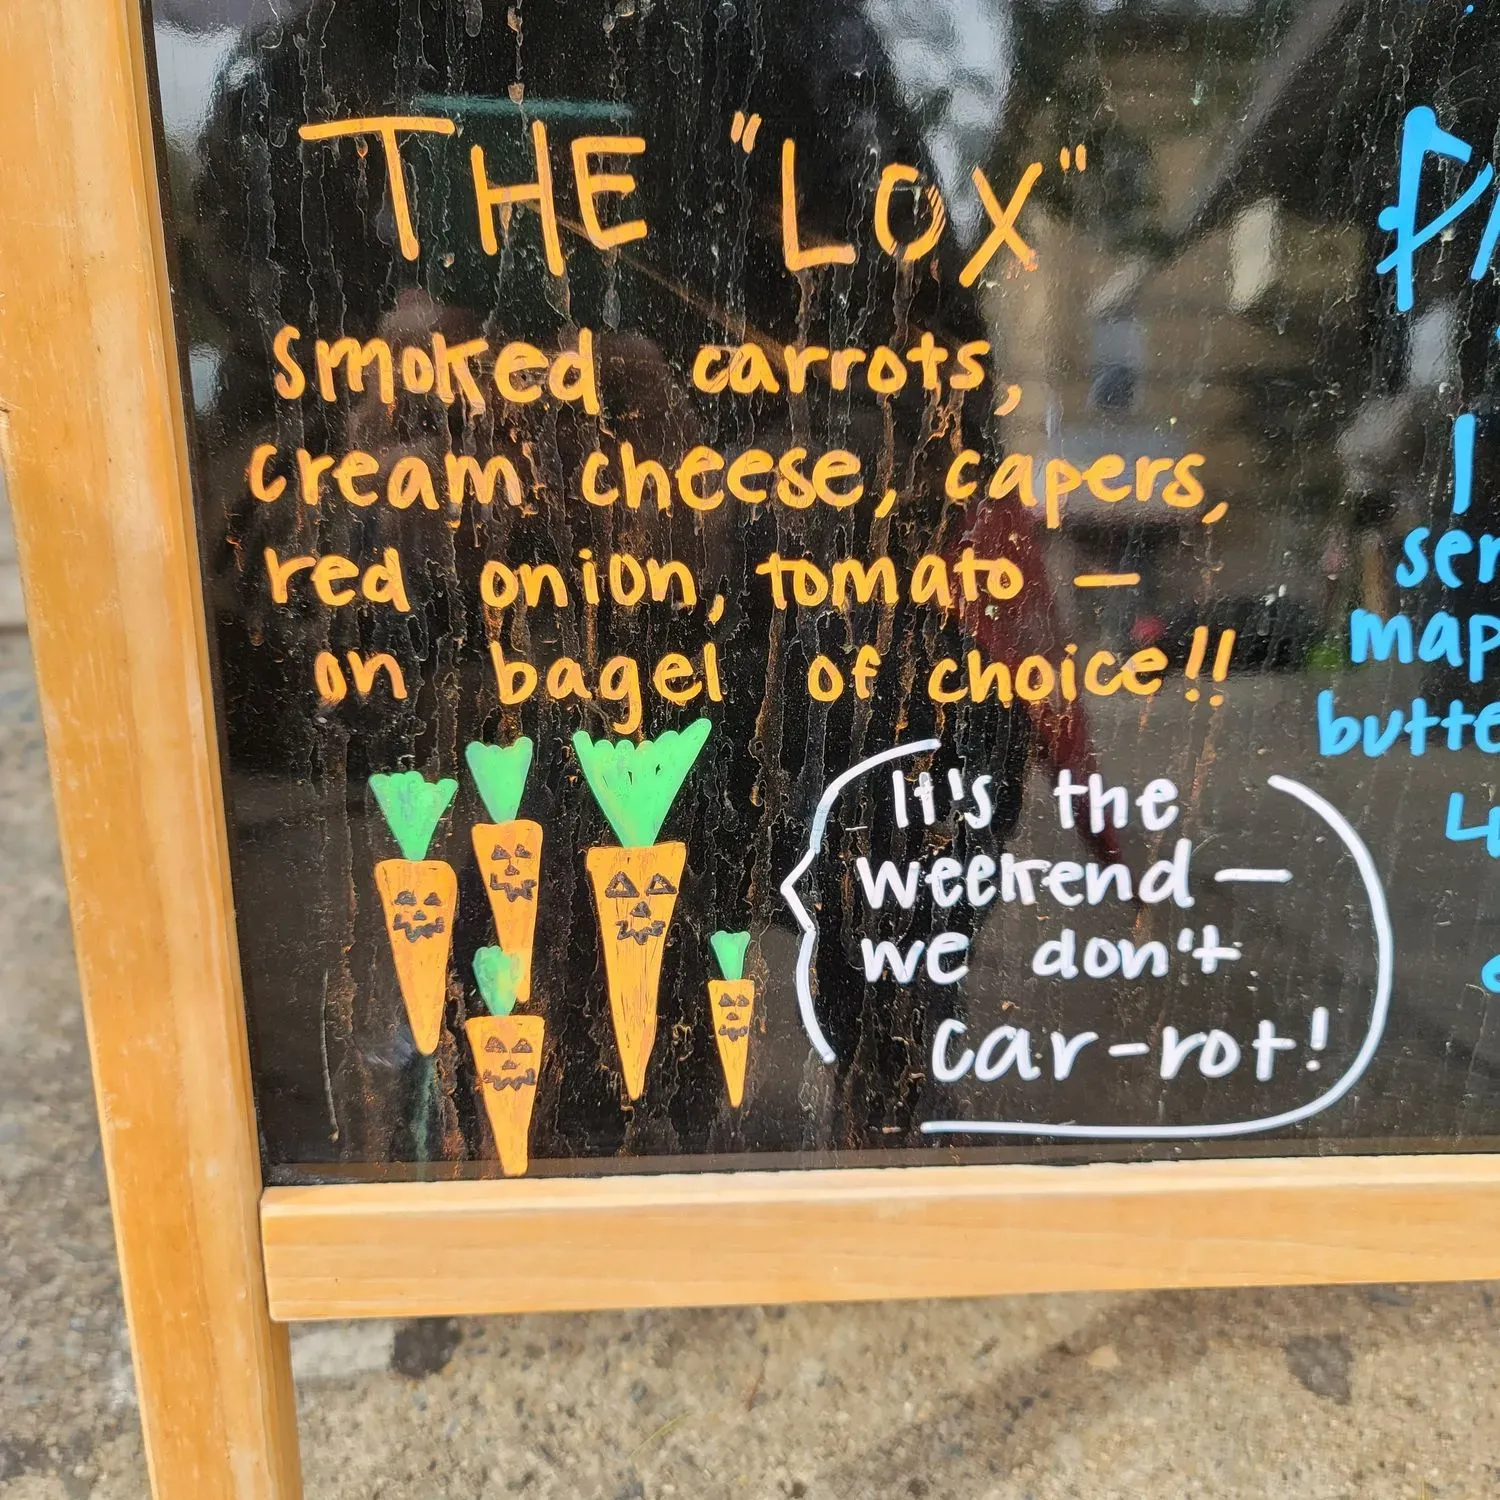 THE "LOX"
smoked carrots,
cream cheese, capers,
red onion, tomato —
on bagel of choice!!
It's the
weekend —
we don't
car-rot!